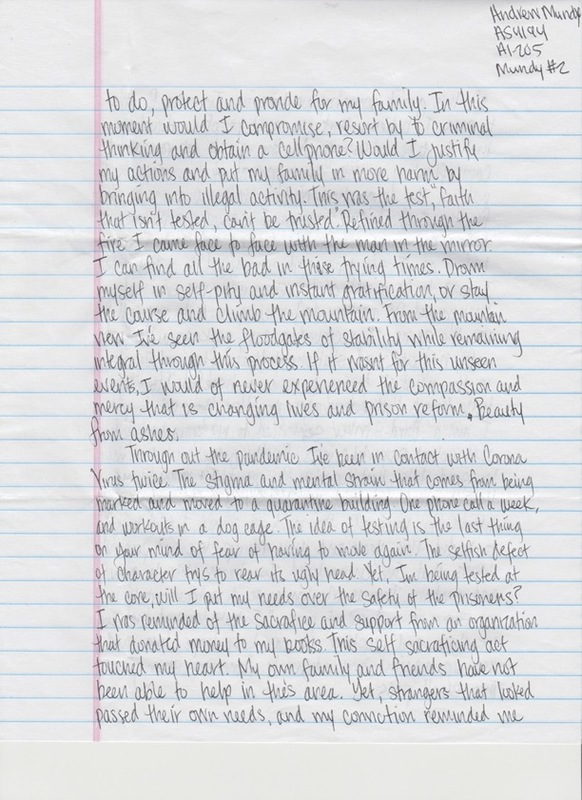 Andrew Mundy
AS4184
A1-205
Mundy #2
to do, protect and provide for my family. In this
moment would I compromise, resort by to criminal
thinking, and obtain a cellphone? Would I justify
my actions and put my family in more harm by
bringing into illegal activity. This was the test, "faith
that isn't tested, can't be trusted." Refined through the
fire I came face to face with the man in the mirror.
I can find all the bad in these trying times. Drown
myself in self-pity and instant gratification, or stay
the course and climb the mountain. From the mountain
view I've seen the floodgates of stability while remaining
integral through this process. If it wasn't for this unseen
events, I would of never experienced the compassion and
mercy that is changing lives and prison reform. Beauty
from ashes.
Through out the pandemic I've been in contact with Corona
Virus twice. The stigma and mental strain that comes from being
marked and moved to a quarantine building. One phone call a week,
and workouts in a dog cage. The idea of testing is the last thing
on your mind of fear of having to move again. The selfish defect
of character trys to rear its ugly head. Yet, I'm being tested at
the core, will I put my needs over the safety of the prisoners?
I was reminded of the sacrafice and support from an organization
that donated money to my books. This self sacraficing act
touched my heart. My own family and friends have not
been able to help in this area. Yet, strangers that looked
passed their own needs, and my conviction reminded me